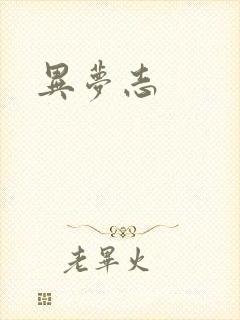 異夢志
老畢火